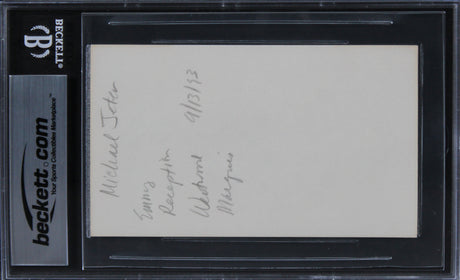 BECKETT
beckett.com
Your Sports Collectibles Marketplace™
Michael
Emmy 9/13/93
Reception
Westwood
Marquis